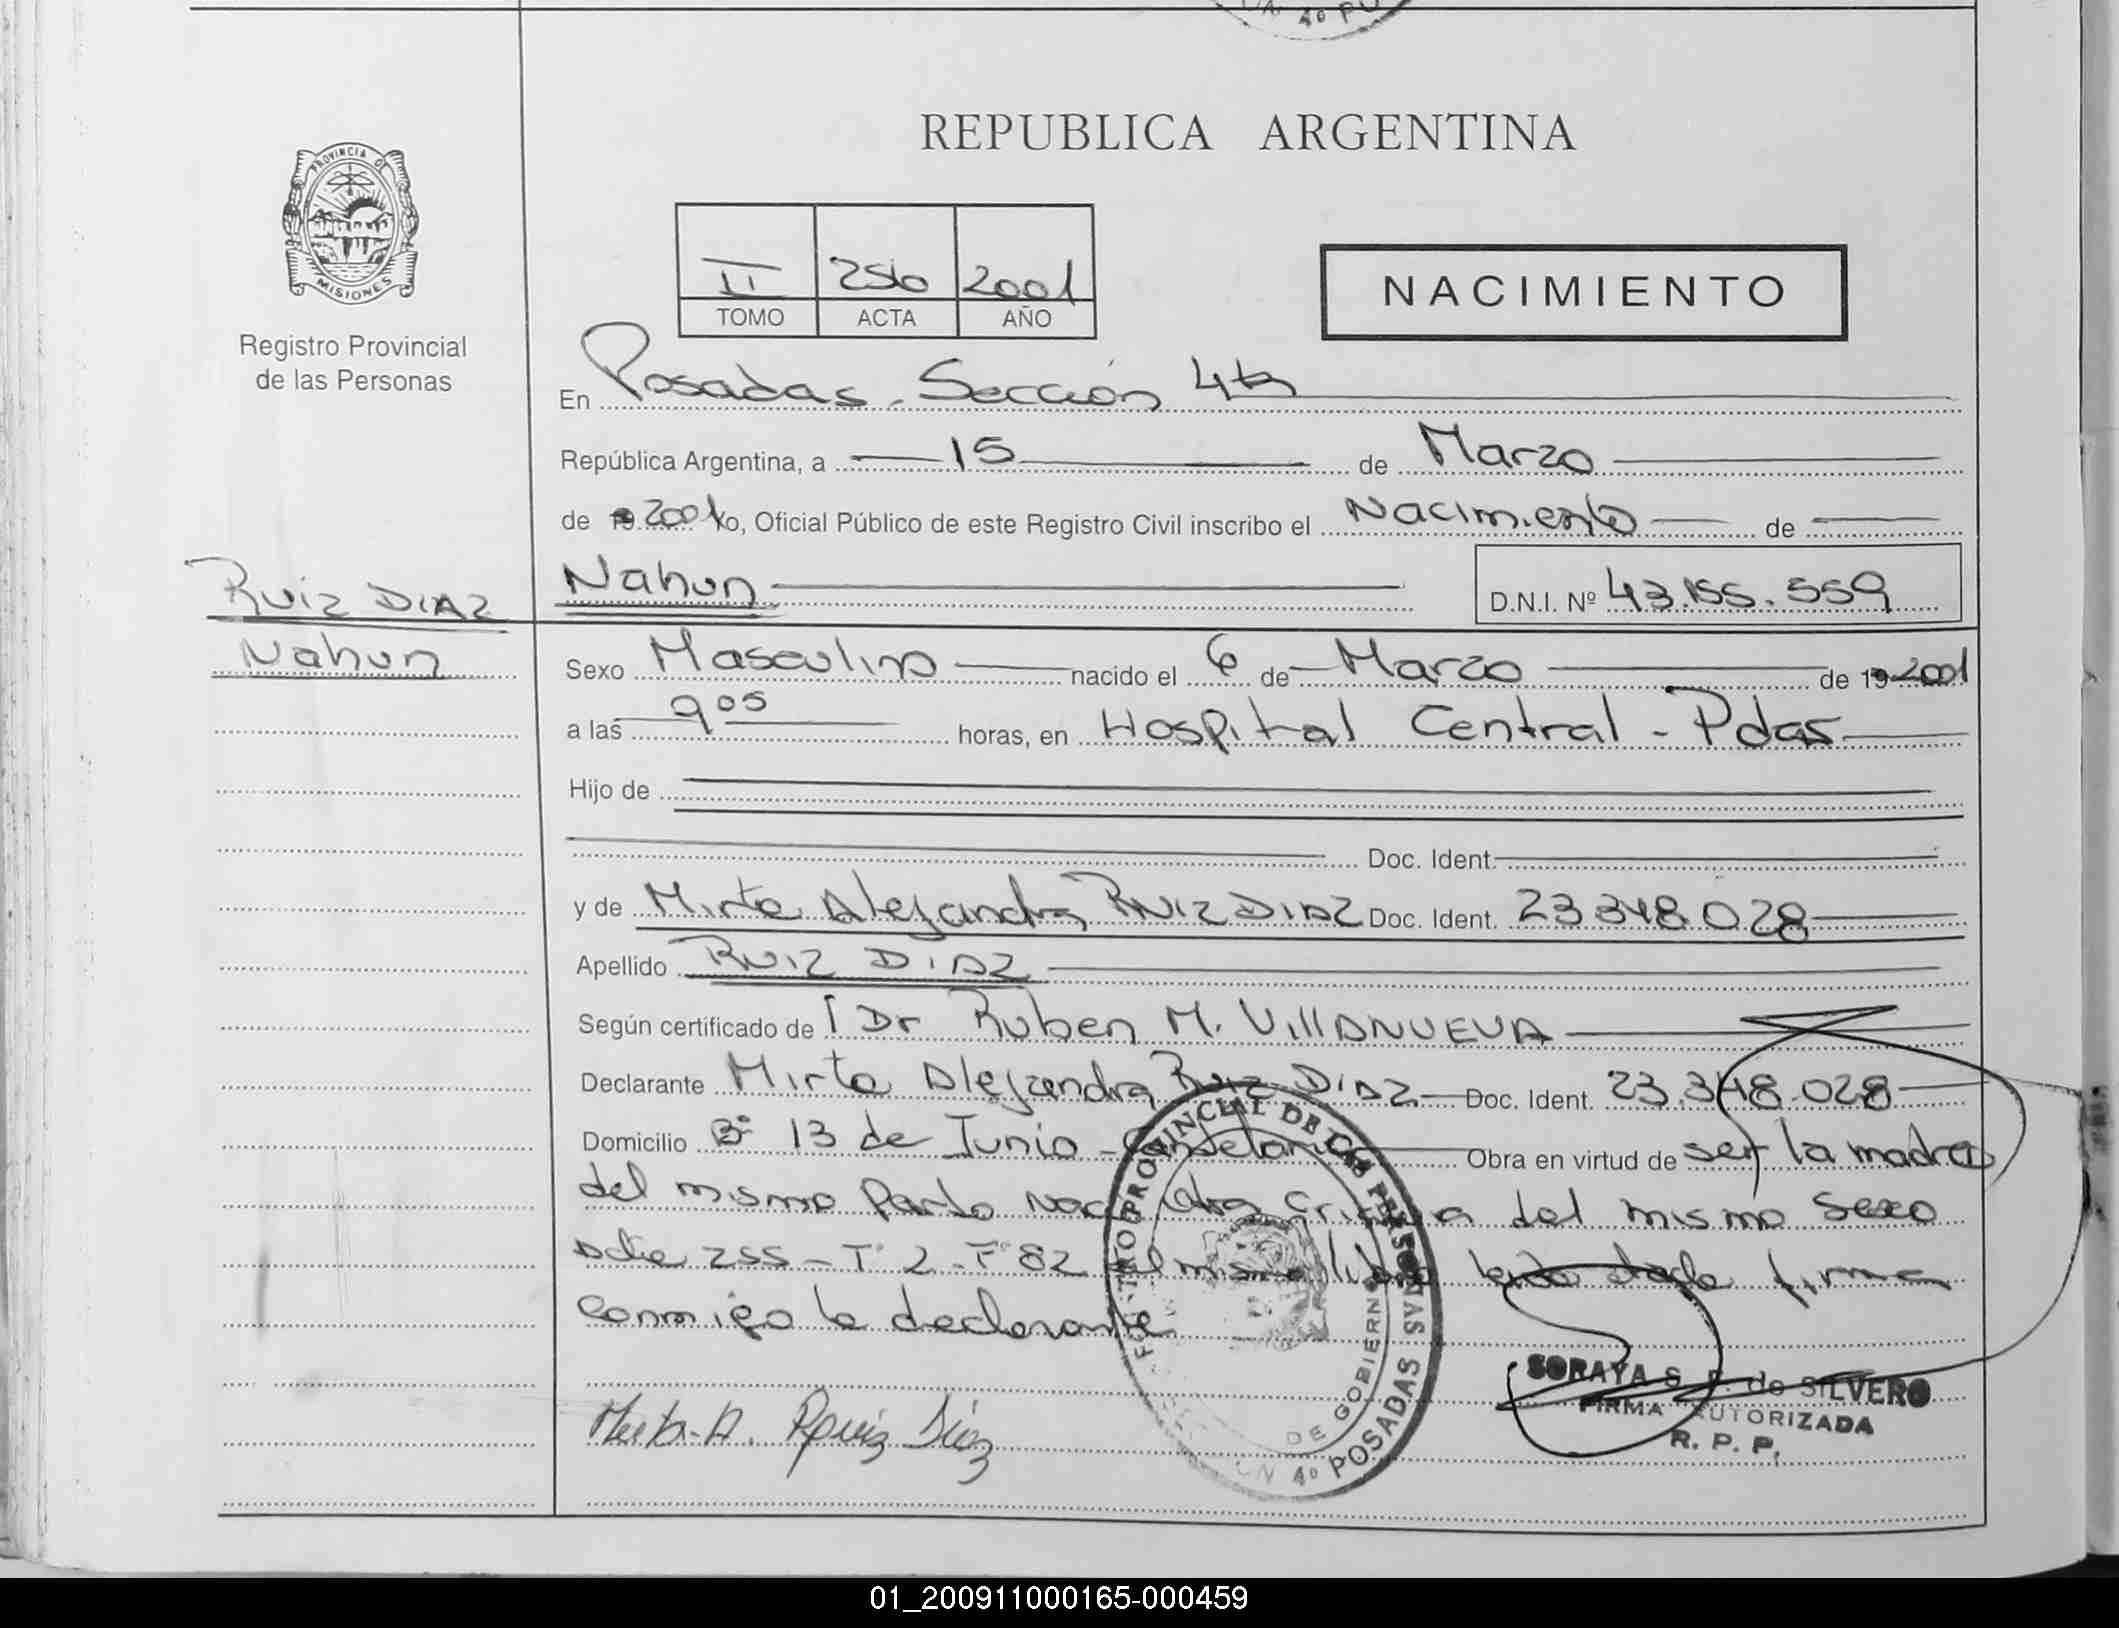 UN 4º PO
REPUBLICA ARGENTINA
PROVINCIA DE
MISIONES
Registro Provincial
de las Personas
II 256 2001
TOMO ACTA AÑO
NACIMIENTO
En Posadas - Sección 4ta
República Argentina, a 15 de Marzo
de 19 2001 Yo, Oficial Público de este Registro Civil inscribo el Nacimiento de
Nahun
D.N.I. Nº 43.155.559
RUIZ DIAZ
Nahun
Sexo Masculino nacido el 6 de Marzo de 19 2001
a las 9 05 horas, en Hospital Central - Pdas
Hijo de
Doc. Ident.
y de Mirta Alejandra RUIZ DIAZ Doc. Ident. 23.348.028
Apellido RUIZ DIAZ
Según certificado de l Dr Ruben M. VILLANUEVA
Declarante Mirta Alejandra Ruiz DIAZ Doc. Ident. 23.348.028
Domicilio Bº 13 de Junio - Candelaria Obra en virtud de ser la madre
del mismo Parto Nac otra criatura del mismo Sexo
Acta 255 - Tº 2 - Fº 82 del mismo libro leida el acta firma
conmigo la declarante
PROVINCIAL DE LAS PERSONAS
DE GOBIERNO
4º POSADAS
Mirta A. Ruiz Díaz
SORAYA S de SILVERO
FIRMA AUTORIZADA
R. P. P.
01_200911000165-000459